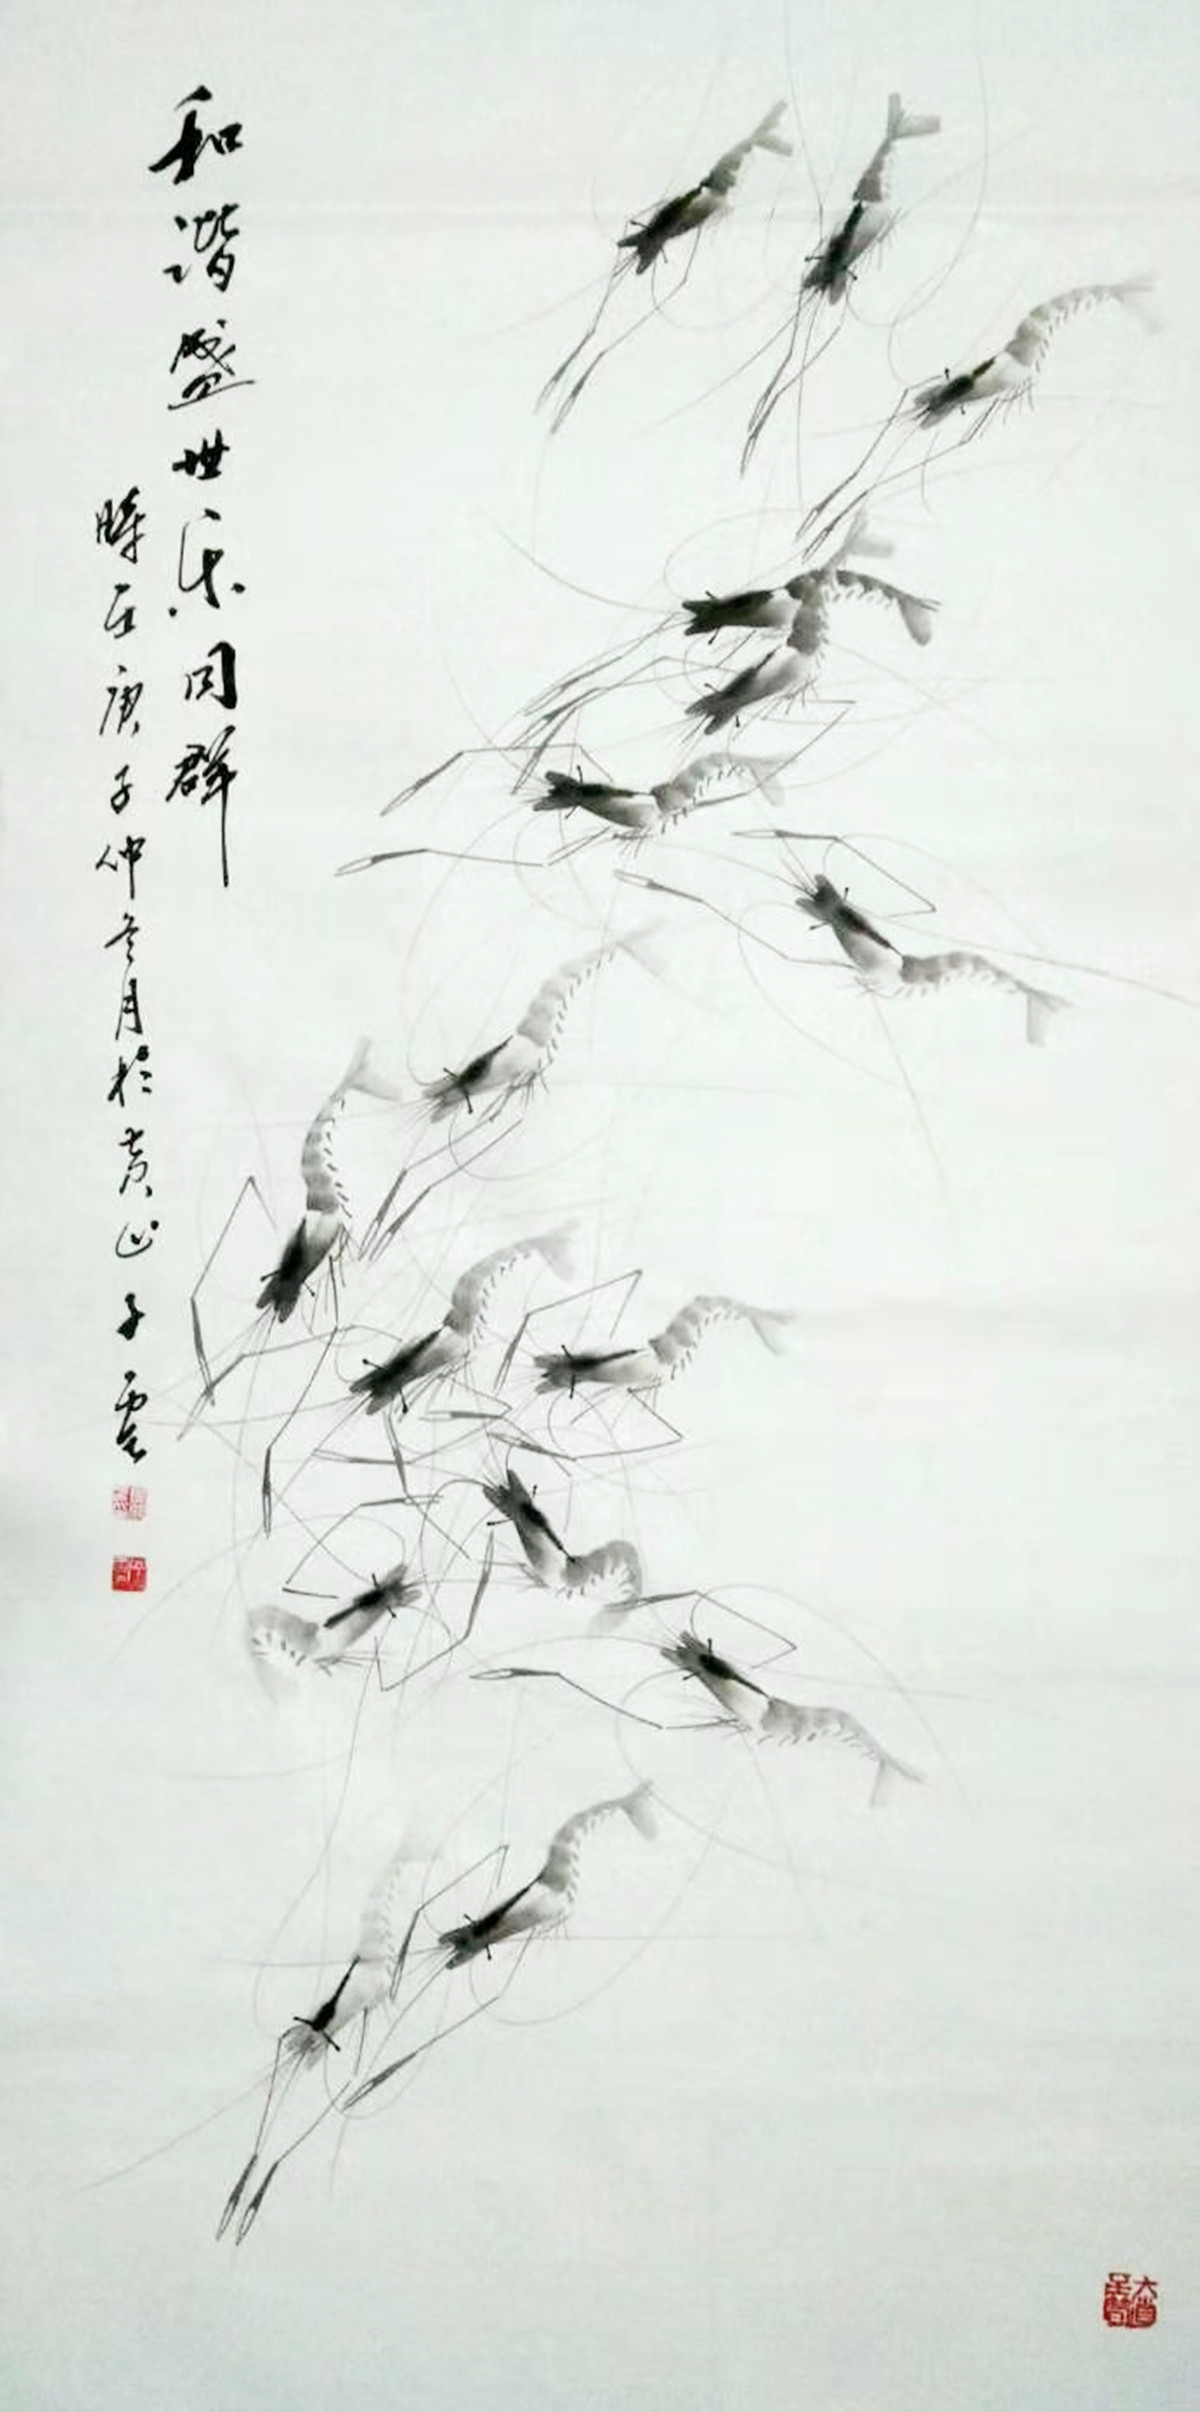 和谐盛世乐同群
时在庚子仲冬月於黄山子云